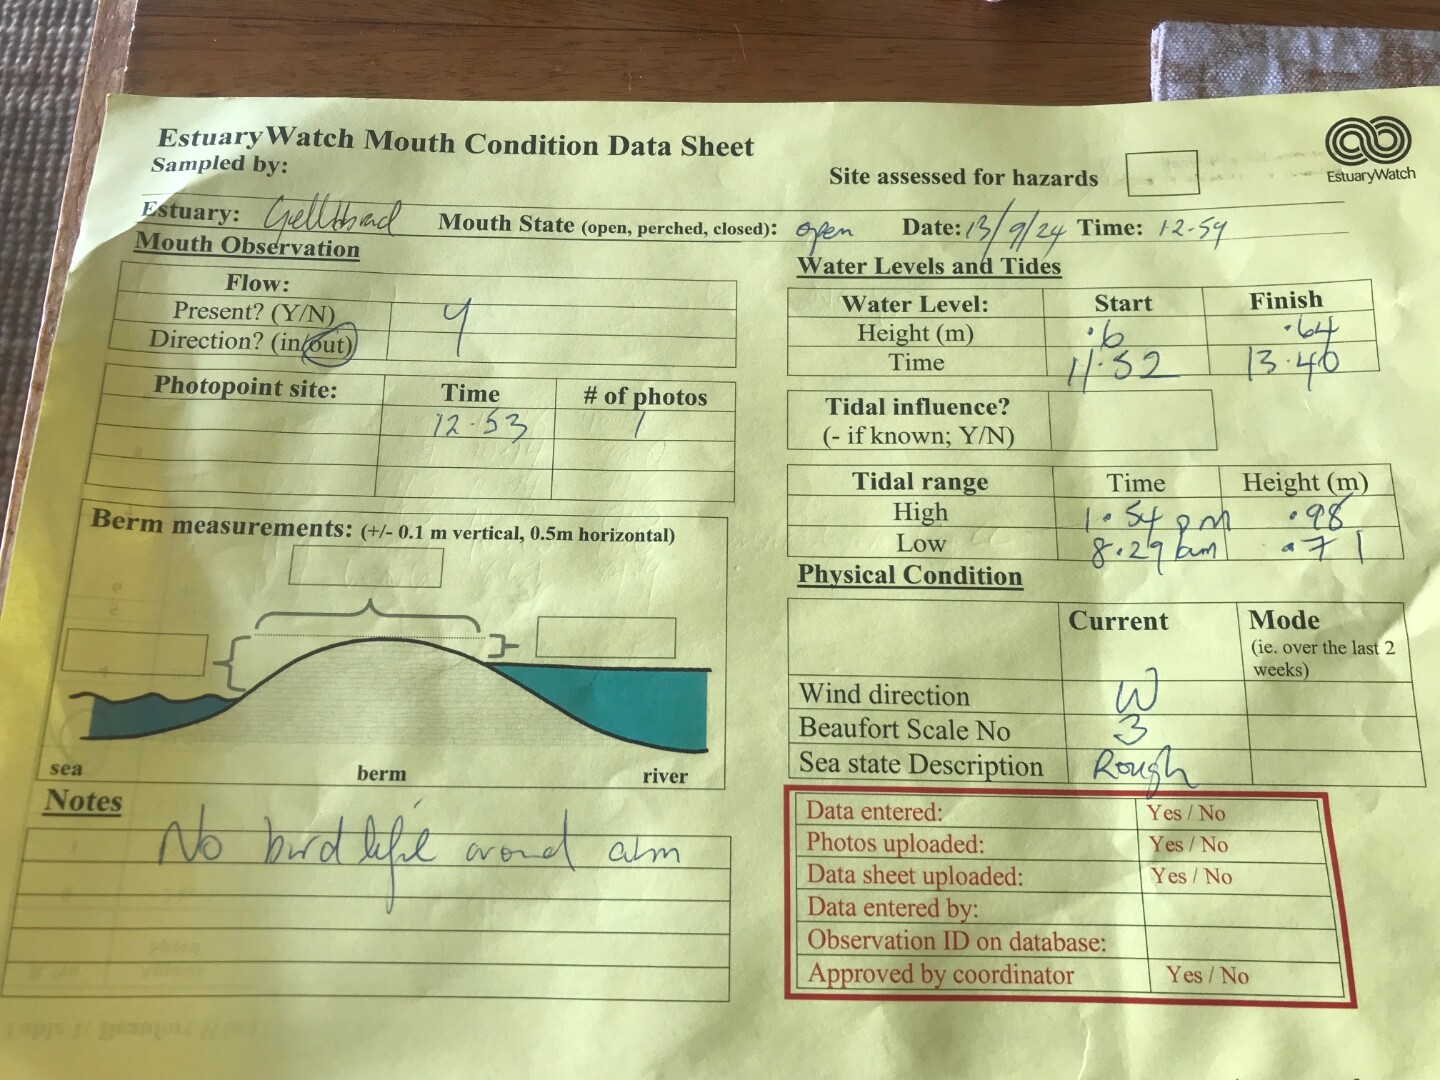 EstuaryWatch Mouth Condition Data Sheet
Sampled by:
Site assessed for hazards
EstuaryWatch
Estuary: Gellibrand Mouth State (open, perched, closed): open Date: 13/9/24 Time: 12.59
Mouth Observation
Flow:
Present? (Y/N) Y
Direction? (in/out)
Photopoint site: Time # of photos
12.53 1
Berm measurements: (+/- 0.1 m vertical, 0.5m horizontal)
sea berm river
Notes
No bird life around
Water Levels and Tides
Water Level: Start Finish
Height (m) .6 .64
Time 11.52 13.40
Tidal influence?
(- if known; Y/N)
Tidal range Time Height (m)
High 1.54 pm .98
Low 8.29 am .71
Physical Condition
Current Mode
(ie. over the last 2
weeks)
Wind direction W
Beaufort Scale No 3
Sea state Description Rough
Data entered: Yes / No
Photos uploaded: Yes / No
Data sheet uploaded: Yes / No
Data entered by:
Observation ID on database:
Approved by coordinator Yes / No